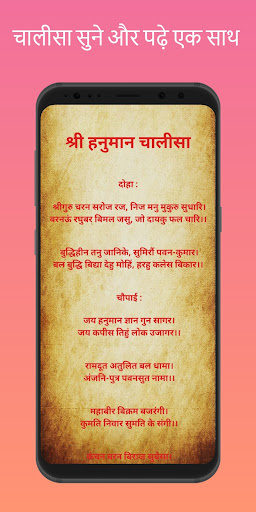 चालीसा सुने और पढ़े एक साथ
श्री हनुमान चालीसा
दोहा :
श्रीगुरु चरन सरोज रज, निज मनु मुकुरु सुधारि।
वरनऊं रघुबर बिमल जसु, जो दायकु फल चारि।।
बुद्धिहीन तनु जानिके, सुमिरौं पवन-कुमार।
बल बुद्धि बिद्या देहु मोहिं, हरहु कलेस बिकार।।
चौपाई :
जय हनुमान ज्ञान गुन सागर।
जय कपीस तिहुं लोक उजागर।।
रामदूत अतुलित बल धामा।
अंजनि-पुत्र पवनसुत नामा।।
महाबीर बिक्रम बजरंगी।
कुमति निवार सुमति के संगी।।
कंचन बरन बिराज सुबेसा।